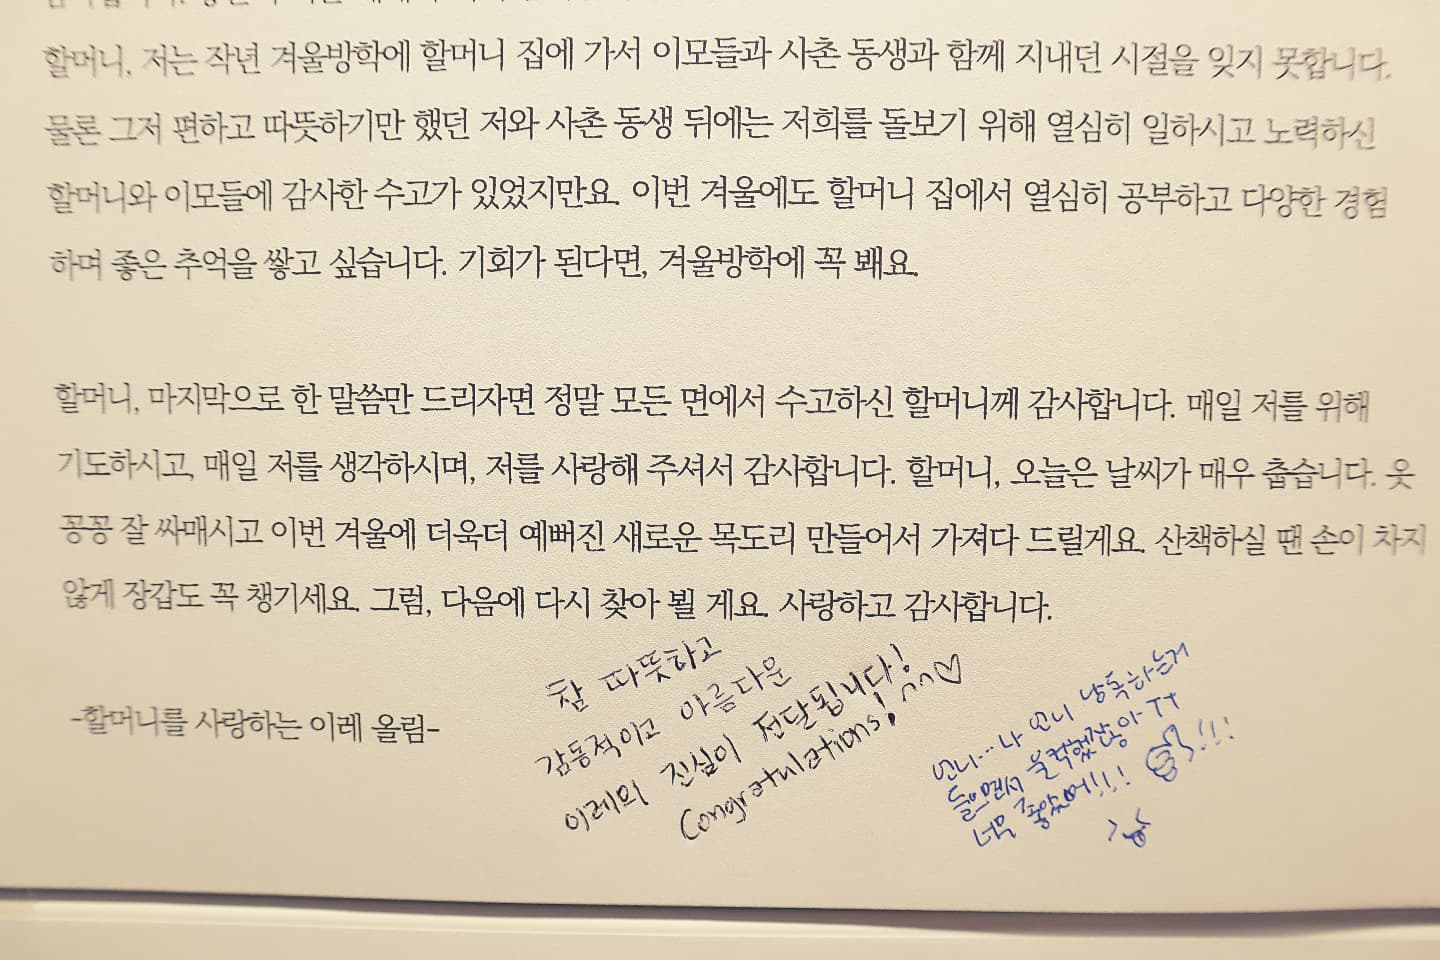 할머니, 저는 작년 겨울방학에 할머니 집에 가서 이모들과 사촌 동생과 함께 지내던 시절을 잊지 못합니다.
물론 그저 편하고 따뜻하기만 했던 저와 사촌 동생 뒤에는 저희를 돌보기 위해 열심히 일하시고 노력하신
할머니와 이모들에 감사한 수고가 있었지만요. 이번 겨울에도 할머니 집에서 열심히 공부하고 다양한 경험
하며 좋은 추억을 쌓고 싶습니다. 기회가 된다면, 겨울방학에 꼭 봬요.
할머니, 마지막으로 한 말씀만 드리자면 정말 모든 면에서 수고하신 할머니께 감사합니다. 매일 저를 위해
기도하시고, 매일 저를 생각하시며, 저를 사랑해 주셔서 감사합니다. 할머니, 오늘은 날씨가 매우 춥습니다. 옷
꽁꽁 잘 싸매시고 이번 겨울에 더욱더 예뻐진 새로운 목도리 만들어서 가져다 드릴게요. 산책하실 땐 손이 차지
않게 장갑도 꼭 챙기세요. 그럼, 다음에 다시 찾아 뵐 게요. 사랑하고 감사합니다.
-할머니를 사랑하는 이레 올림-
참 따뜻하고
감동적이고 아름다운
이레의 진심이 전달됩니다!
Congratulations! ^^♡
언니... 나 언니 낭독하는거
들으면서 울컥했잖아 ㅜㅜ
너무 좋았어!!! !!!